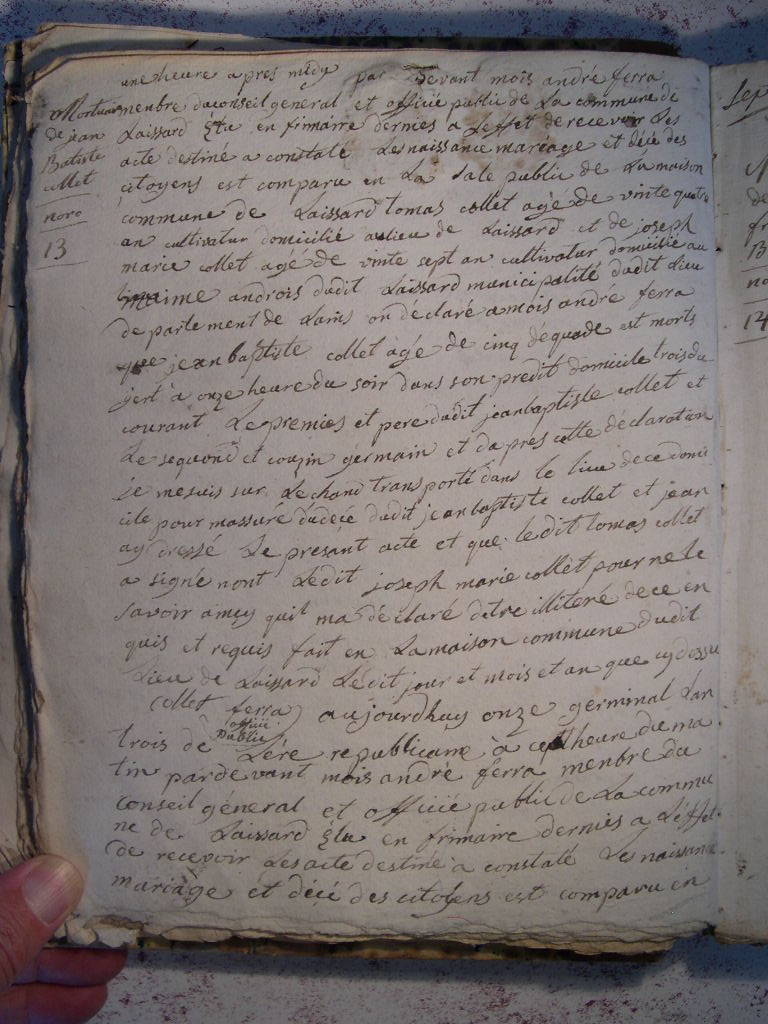 une heure apres midy par devant mois andré ferra
Mortuair
de jean
Batiste
collet
nero
13
menbre du conseil general et officié public de La commune de
Laissard Elu en frimaire dernies a Leffet de recevoir Les
acte destiné a constaté Les naissance mariage et décé des
citoyens est comparu en La sale public de La maison
commune de Laissard tomas collet agé de vinte quatre
an cultivatur domicilié au lieu de Laissard et de joseph
marie collet agé de vinte sept an cultivatur domicilié au
maime androis dudit Laissard municipalité dudit lieu
departement de Lains on declaré a mois andré ferra
que jean baptiste collet agé de cinq déquade est morts
jert à onze heure du soir dans son predit domicile trois du
courant Le premies et pere dudit jean baptiste collet et
Le sequond et cousin germain et da pres cette déclaration
je me suis sur Le chand transporté dans le lieu de ce domi
cile pour massuré dudécé dudit jean baptiste collet et jean
ay dressé Le presant acte et que ledit tomas collet
a signé nont Ledit joseph marie collet pour ne le
savoir amcy quil ma déclaré detre illiteré de ce en
quis et requis fait en La maison commune dudit
Lieu de Laissard Ledit jour et mois et an que cy dessu
collet ferra officié public aujourdhuy onze germinal Lan
trois de Lére republicaine à cept heure du ma
tin pardevant mois andré ferra menbre du
conseil général et officié public de La commu
ne de Laissard Elu en frimaire dernies a Léffet
de recevoir Les acte destiné a constaté Les naissance
mariage et décé des citoyens est comparu en
Sep
13
14